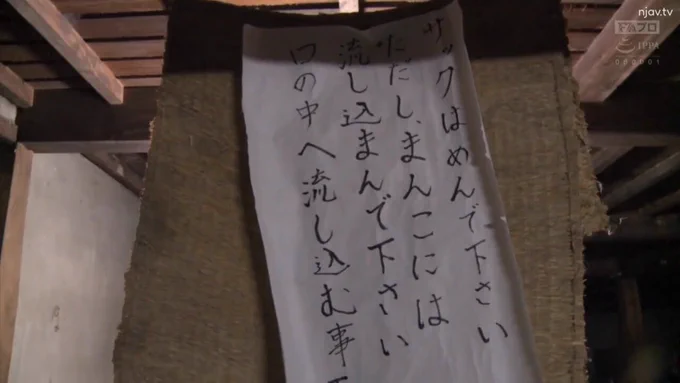 サックはめんで下さい
ただし、まんこには
流し込まんで下さい
口の中へ流し込む事
njav.tv
IPPA